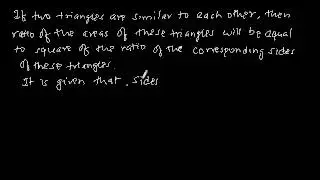 If two triangles are similar to each other, then
ratio of the areas of these triangles will be equal
to square of the ratio of the corresponding sides
of these triangles.
It is given that, sides